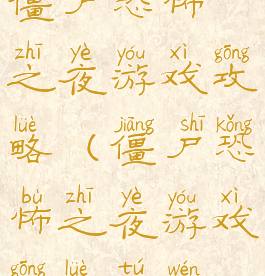 僵尸恐怖
zhī yè yóu xì gōng
之夜游戏攻
lüè jiāng shī kǒng
略（僵尸恐
bù zhī yè yóu xì
怖之夜游戏
gōng lüè tú wén